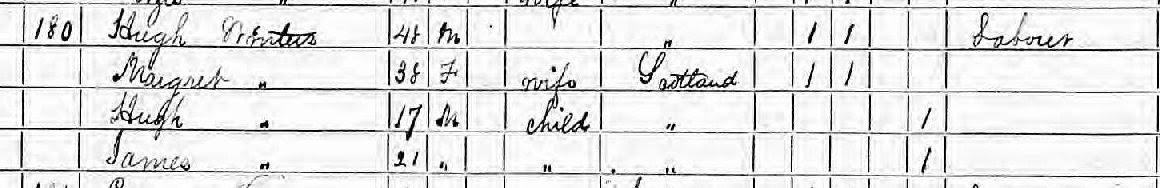 wife
180 Hugh Winters 48 M " 1 1 Labourer
Margret " 38 F wife Scotland 1 1
Hugh " 17 M child " 1
James " 21 " " " 1